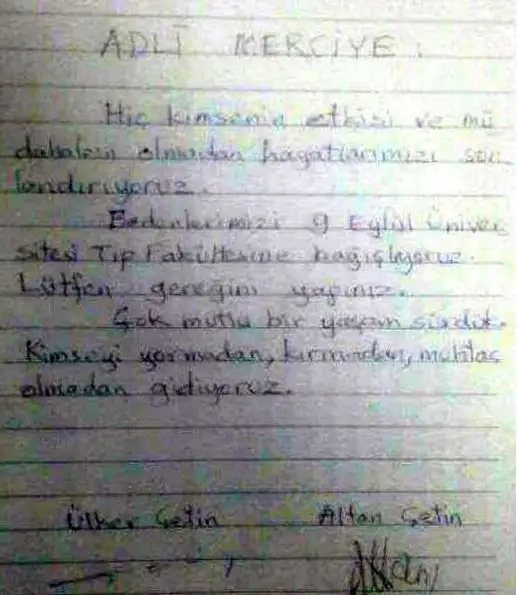 ADLİ MERCİYE:
Hiç kimsenin etkisi ve mü
dahalesi olmadan hayatlarımızı son
landırıyoruz.
Bedenlerimizi 9 Eylül Üniver
sitesi Tıp Fakültesine bağışlıyoruz.
Lütfen gereğini yapınız.
Çok mutlu bir yaşam sürdük.
Kimseyi yormadan, kırmadan, muhtaç
olmadan gidiyoruz.
Ülker Çetin Altan Çetin